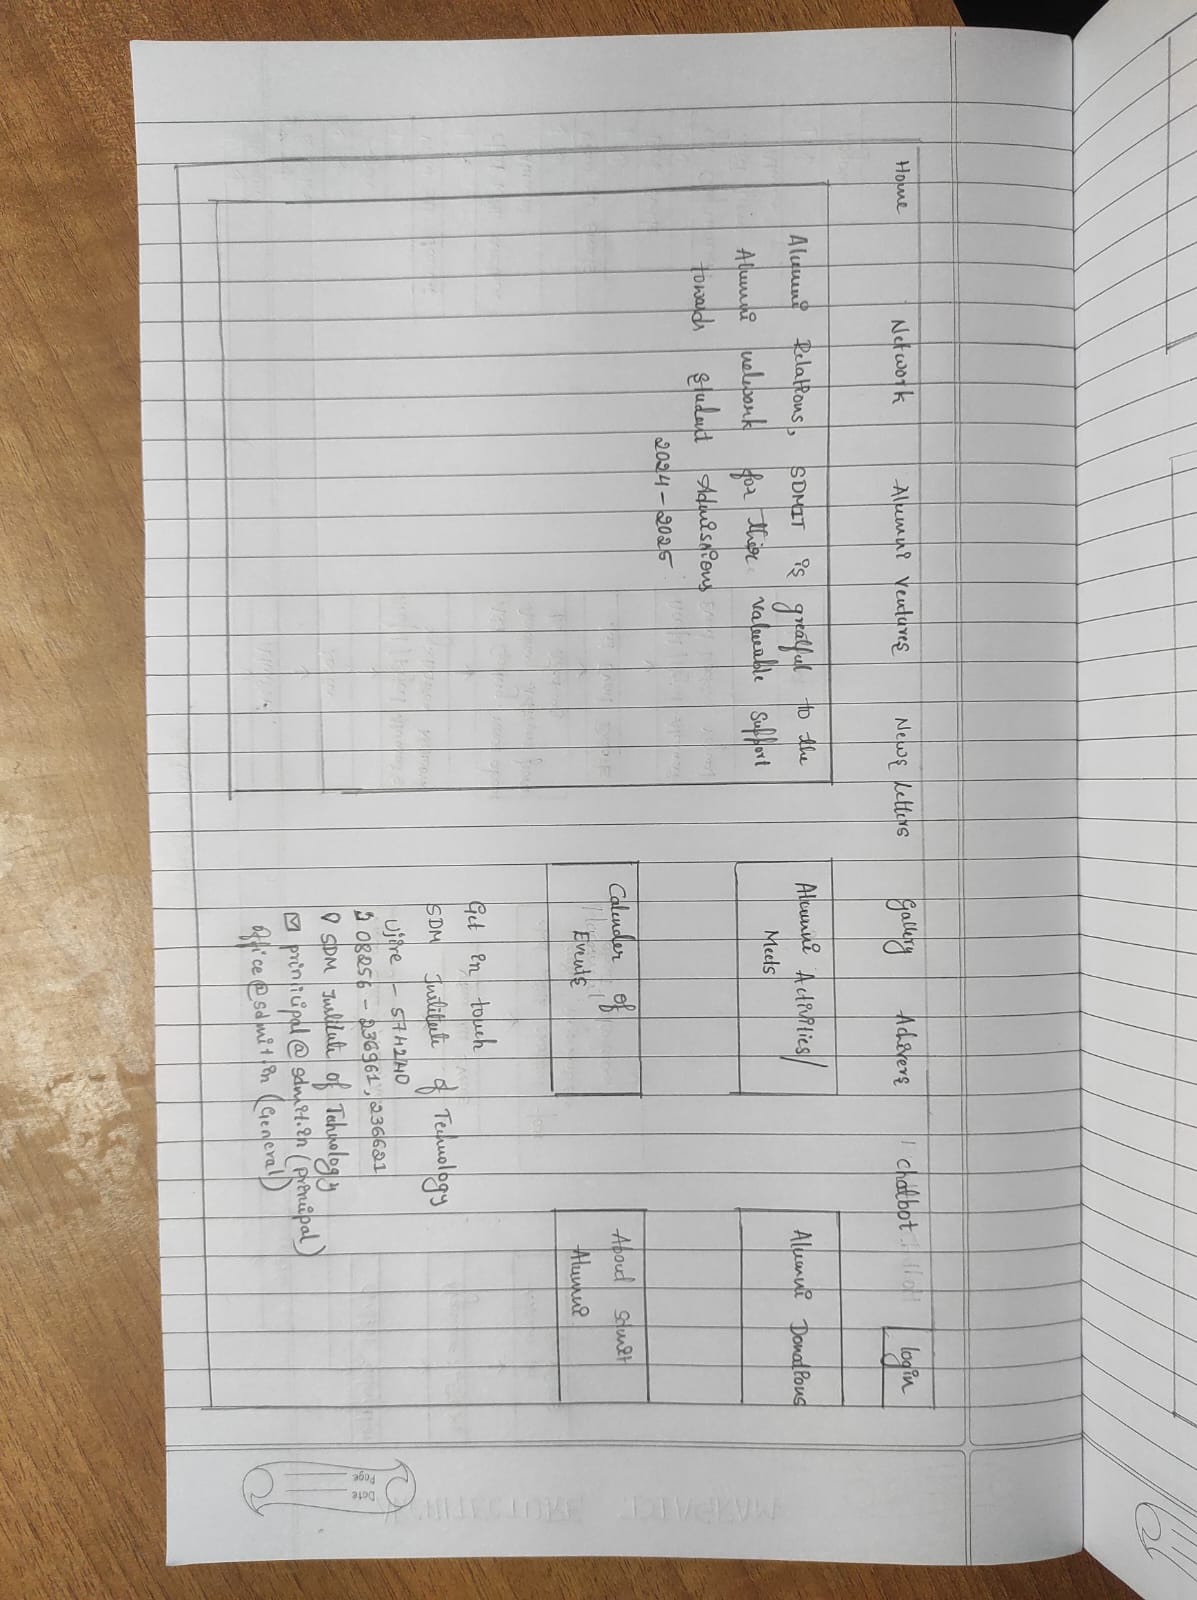 Home Network Alumni Ventures News letters Gallery Achivers chatbot login
Alumni Relations, SDMIT is greatful to the
Alumni network for thier valueable support
towards student Admissions
2024-2025
Alumni Activities/
Meets
Alumni Donations
Calender of
Events
About sdmit
Alumni
Get in touch
SDM Institute of Technology
Ujire - 574240
08256-236961, 236621
SDM Institute of Tehnology
prinicipal@sdmit.in (principal)
office@sdmit.in (General)
Page
Date